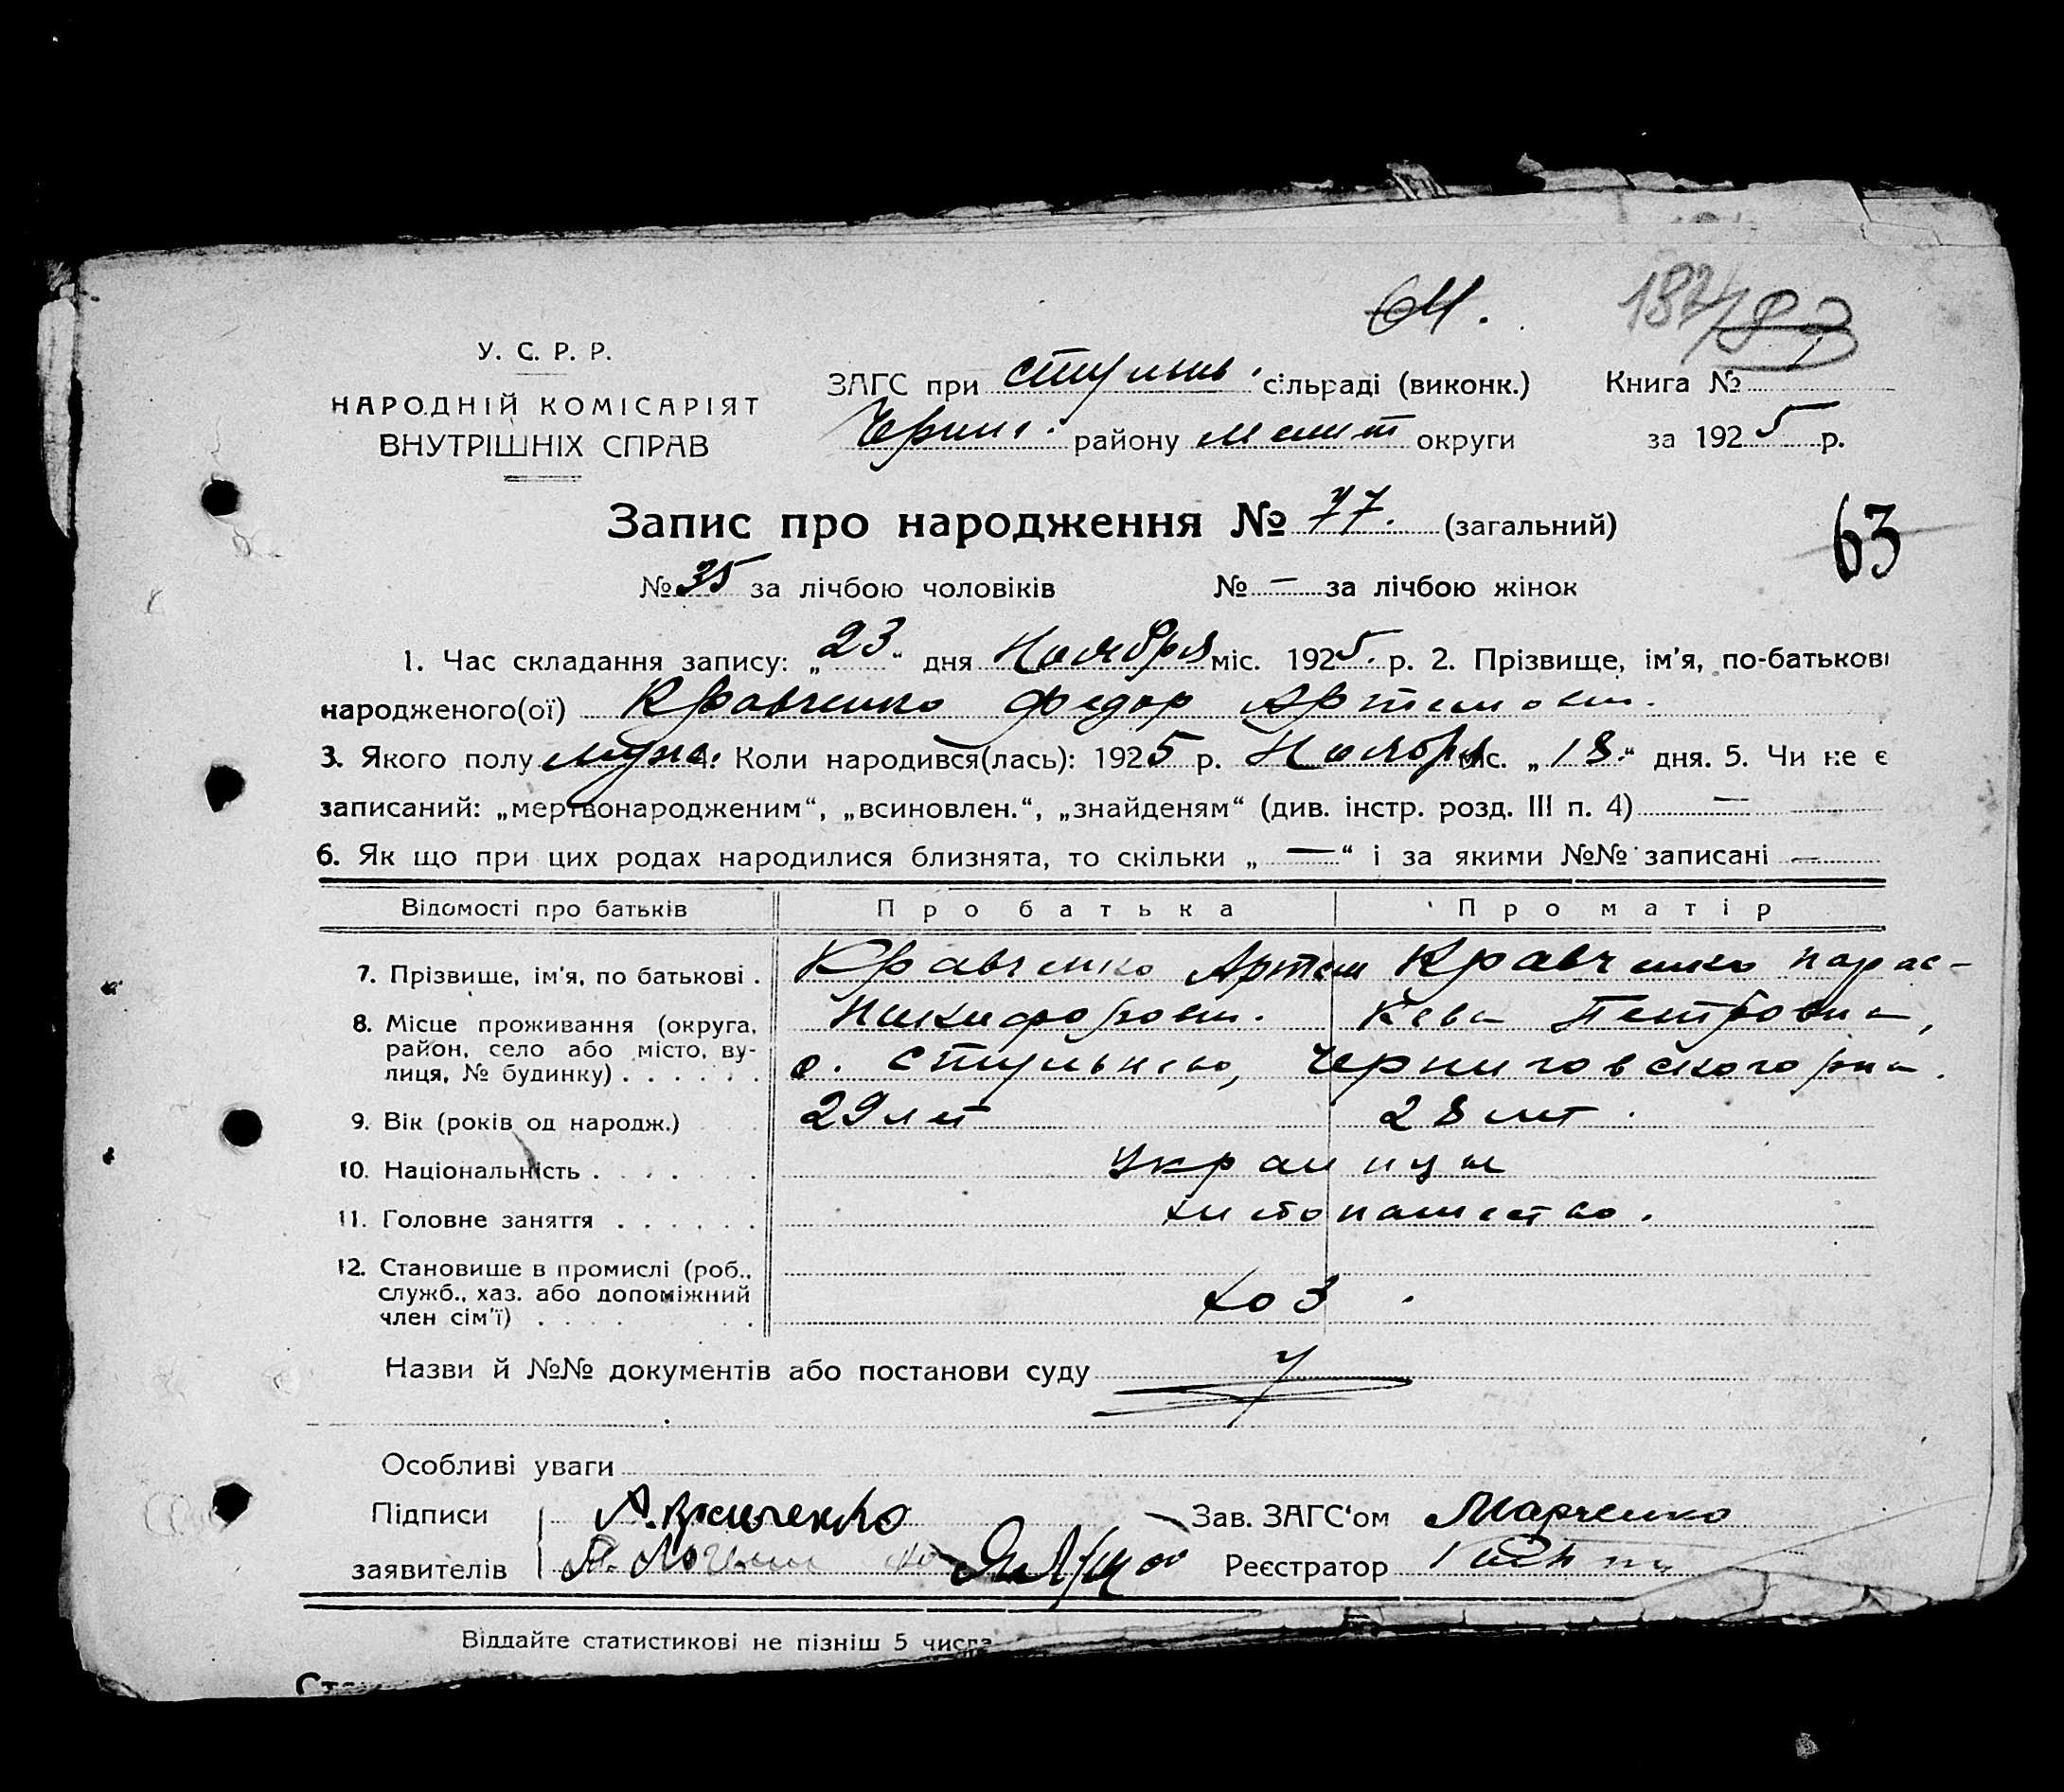 64.
182/
У. С. Р. Р.
НАРОДНІЙ КОМІСАРІЯТ
ВНУТРІШНІХ СПРАВ
ЗАГС при стульнев. сільраді (виконк.) Книга №
Черниг. району Мелит округи за 1925 р.
Запис про народження № 77. (загальний)
63
№ 35 за лічбою чоловіків № — за лічбою жінок
1. Час складання запису: „23“ дня Ноября міс. 1925. р. 2. Прізвище, ім'я, по-батькові
народженого(ої) Кравченко Федор Артемович.
3. Якого полу муж. 4. Коли народився(лась): 1925 р. Ноября міс. „18.“ дня. 5. Чи не є
записаний: „мертвонародженим“, „всиновлен.“, „знайденям“ (див. інстр. розд. III п. 4) —
6. Як що при цих родах народилися близнята, то скільки „ — “ і за якими №№ записані —
Відомості про батьків Про батька Про матір
7. Прізвище, ім'я, по батькові . Кравченко Артем Кравченко Парас-
8. Місце проживання (округа, Никифорович. кева Петровна,
район, село або місто, ву-
лиця, № будинку) . . . . . . с. Стульнево, Черниговского рай.
9. Вік (років од народж.) 29 лет 28 лет.
10. Національність . . . . . Украинцы
11. Головне заняття . . . . . . хлебопашество.
12. Становище в промислі (роб.,
служб., хаз. або допоміжний хоз.
член сім'ї) . . . . . . . .
Назви й №№ документів або постанови суду
Особливі уваги
Підписи А. Кравченко Зав. ЗАГС'ом Марченко
заявителів Реєстратор
Віддайте статистикові не пізніш 5 числа